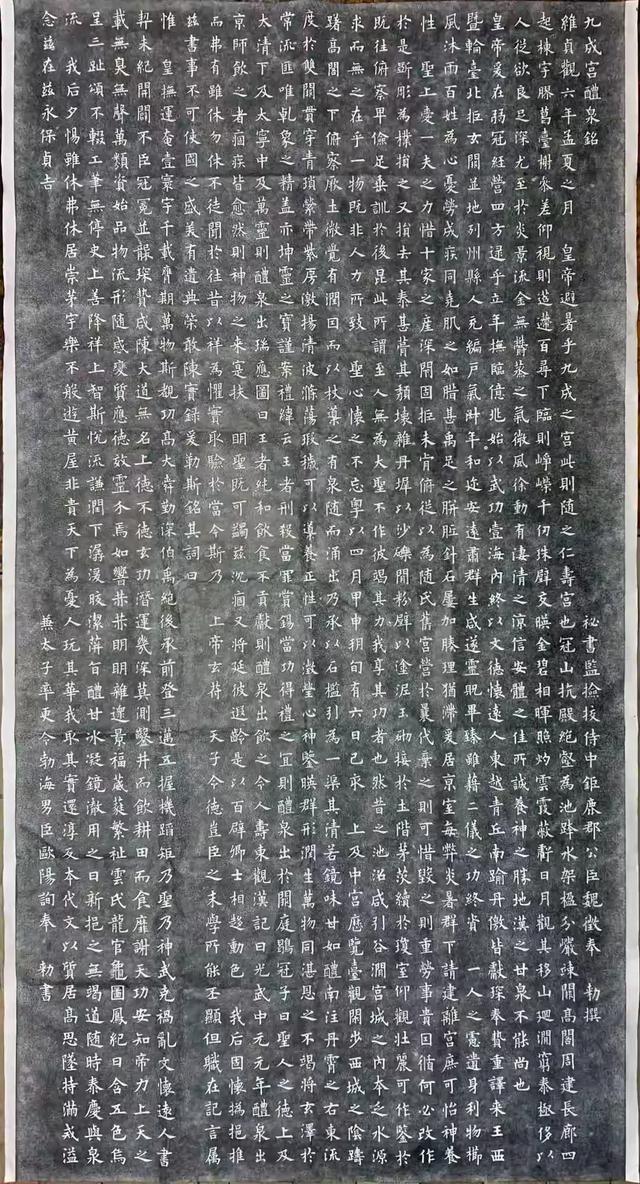 九成宮醴泉銘 秘書監檢校侍中鉅鹿郡公臣魏徵奉 勑撰
維貞觀六年孟夏之月 皇帝避暑乎九成之宮此則隨之仁壽宮也冠山抗殿絕壑為池跨水架楹分巖竦闕高閣周建長廊四
起棟宇膠葛臺榭參差仰視則迢遰百尋下臨則崢嶸千仞珠壁交暎金碧相暉照灼雲霞蔽虧日月觀其移山迴澗窮泰極侈以
人從欲良足深尤至於炎景流金無鬱蒸之氣微風徐動有淒清之涼信安體之佳所誠養神之勝地漢之甘泉不能尚也
皇帝爰在弱冠經營四方逮乎立年撫臨億兆始以武功壹海內終以文德懷遠人東越青丘南踰丹儌皆獻琛奉贄重譯來王西
暨輪臺北拒玄闕並地列州縣人充編戶氣淑年和迩安遠肅群生咸遂靈貺畢臻雖藉二儀之功終資 一人之慮遺身利物櫛
風沐雨百姓為心憂勞成疾同堯肌之如腊甚禹足之胼胝針石屢加腠理猶滯爰居京室每弊炎暑群下請建離宮庶可怡神養
性 聖上愛一夫之力惜十家之產深閉固拒未肯俯從以為隨氏舊宮營於曩代棄之則可惜毀之則重勞事貴因循何必改作
於是斲彫為樸損之又損去其泰甚葺其頹壞雜丹墀以沙礫間粉壁以塗泥玉砌接於土階茅茨續於瓊室仰觀壯麗可作鑒於
既往俯察卑儉足垂訓於後昆此所謂至人無為大聖不作彼竭其力我享其功者也然昔之池沼咸引谷澗宮城之內本乏水源
求而無之在乎一物既非人力所致 聖心懷之不忘粵以四月甲申朔旬有六日己亥 上及中宮歷覽臺觀閑步西城之陰躊
躇高閣之下俯察厥土微覺有潤因而以杖導之有泉隨而涌出乃承以石檻引為一渠其清若鏡味甘如醴南注丹霄之右東流
度於雙闕貫穿青瑣縈帶紫房激揚清波滌蕩瑕穢可以導養正性可以澂瑩心神鑒暎群形潤生萬物同湛恩之不竭將玄澤於
常流匪唯乹象之精蓋亦坤靈之寶謹案禮緯云王者刑殺當罪賞錫當功得禮之宜則醴泉出於闕庭鶡冠子曰聖人之德上及
太清下及太寧中及萬靈則醴泉出瑞應圖曰王者純和飲食不貢獻則醴泉出飲之令人壽東觀漢記曰光武中元元年醴泉出
京師飲之者痼疾皆愈然則神物之來寔扶 明聖既可蠲茲沉痼又將延彼遐齡是以百辟卿士相趨動色 我后固懷撝挹推
而弗有雖休勿休不徒聞於往昔以祥為懼實取驗於當今斯乃 上帝玄符 天子令德豈臣之末學所能丕顯但職在記言屬
茲書事不可使國之盛美有遺典策敢陳實錄爰勒斯銘其詞曰
惟 皇撫運奄壹寰宇千載膺期萬物斯覩功高大舜勤深伯禹絕後承前登三邁五握機蹈矩乃聖乃神武克禍亂文懷遠人書
契未紀開闢不臣冠冕並襲琛贄咸陳大道無名上德不德玄功潛運幾深莫測鑿井而飲耕田而食靡謝天功安知帝力上天之
載無臭無聲萬類資始品物流形隨感變質應德效靈介焉如響赫赫明明雜遝景福葳蕤繁祉雲氏龍官龜圖鳳紀日含五色烏
呈三趾頌不輟工筆無停史上善降祥上智斯悅流謙潤下潺湲皎潔萍旨醴甘冰凝鏡澈用之日新挹之無竭道隨時泰慶與泉
流 我后夕惕雖休弗休居崇茅宇樂不般遊黃屋非貴天下為憂人玩其華我取其實還淳反本代文以質居高思墜持滿戒溢
念茲在茲永保貞吉 兼太子率更令勃海男臣歐陽詢奉 勑書